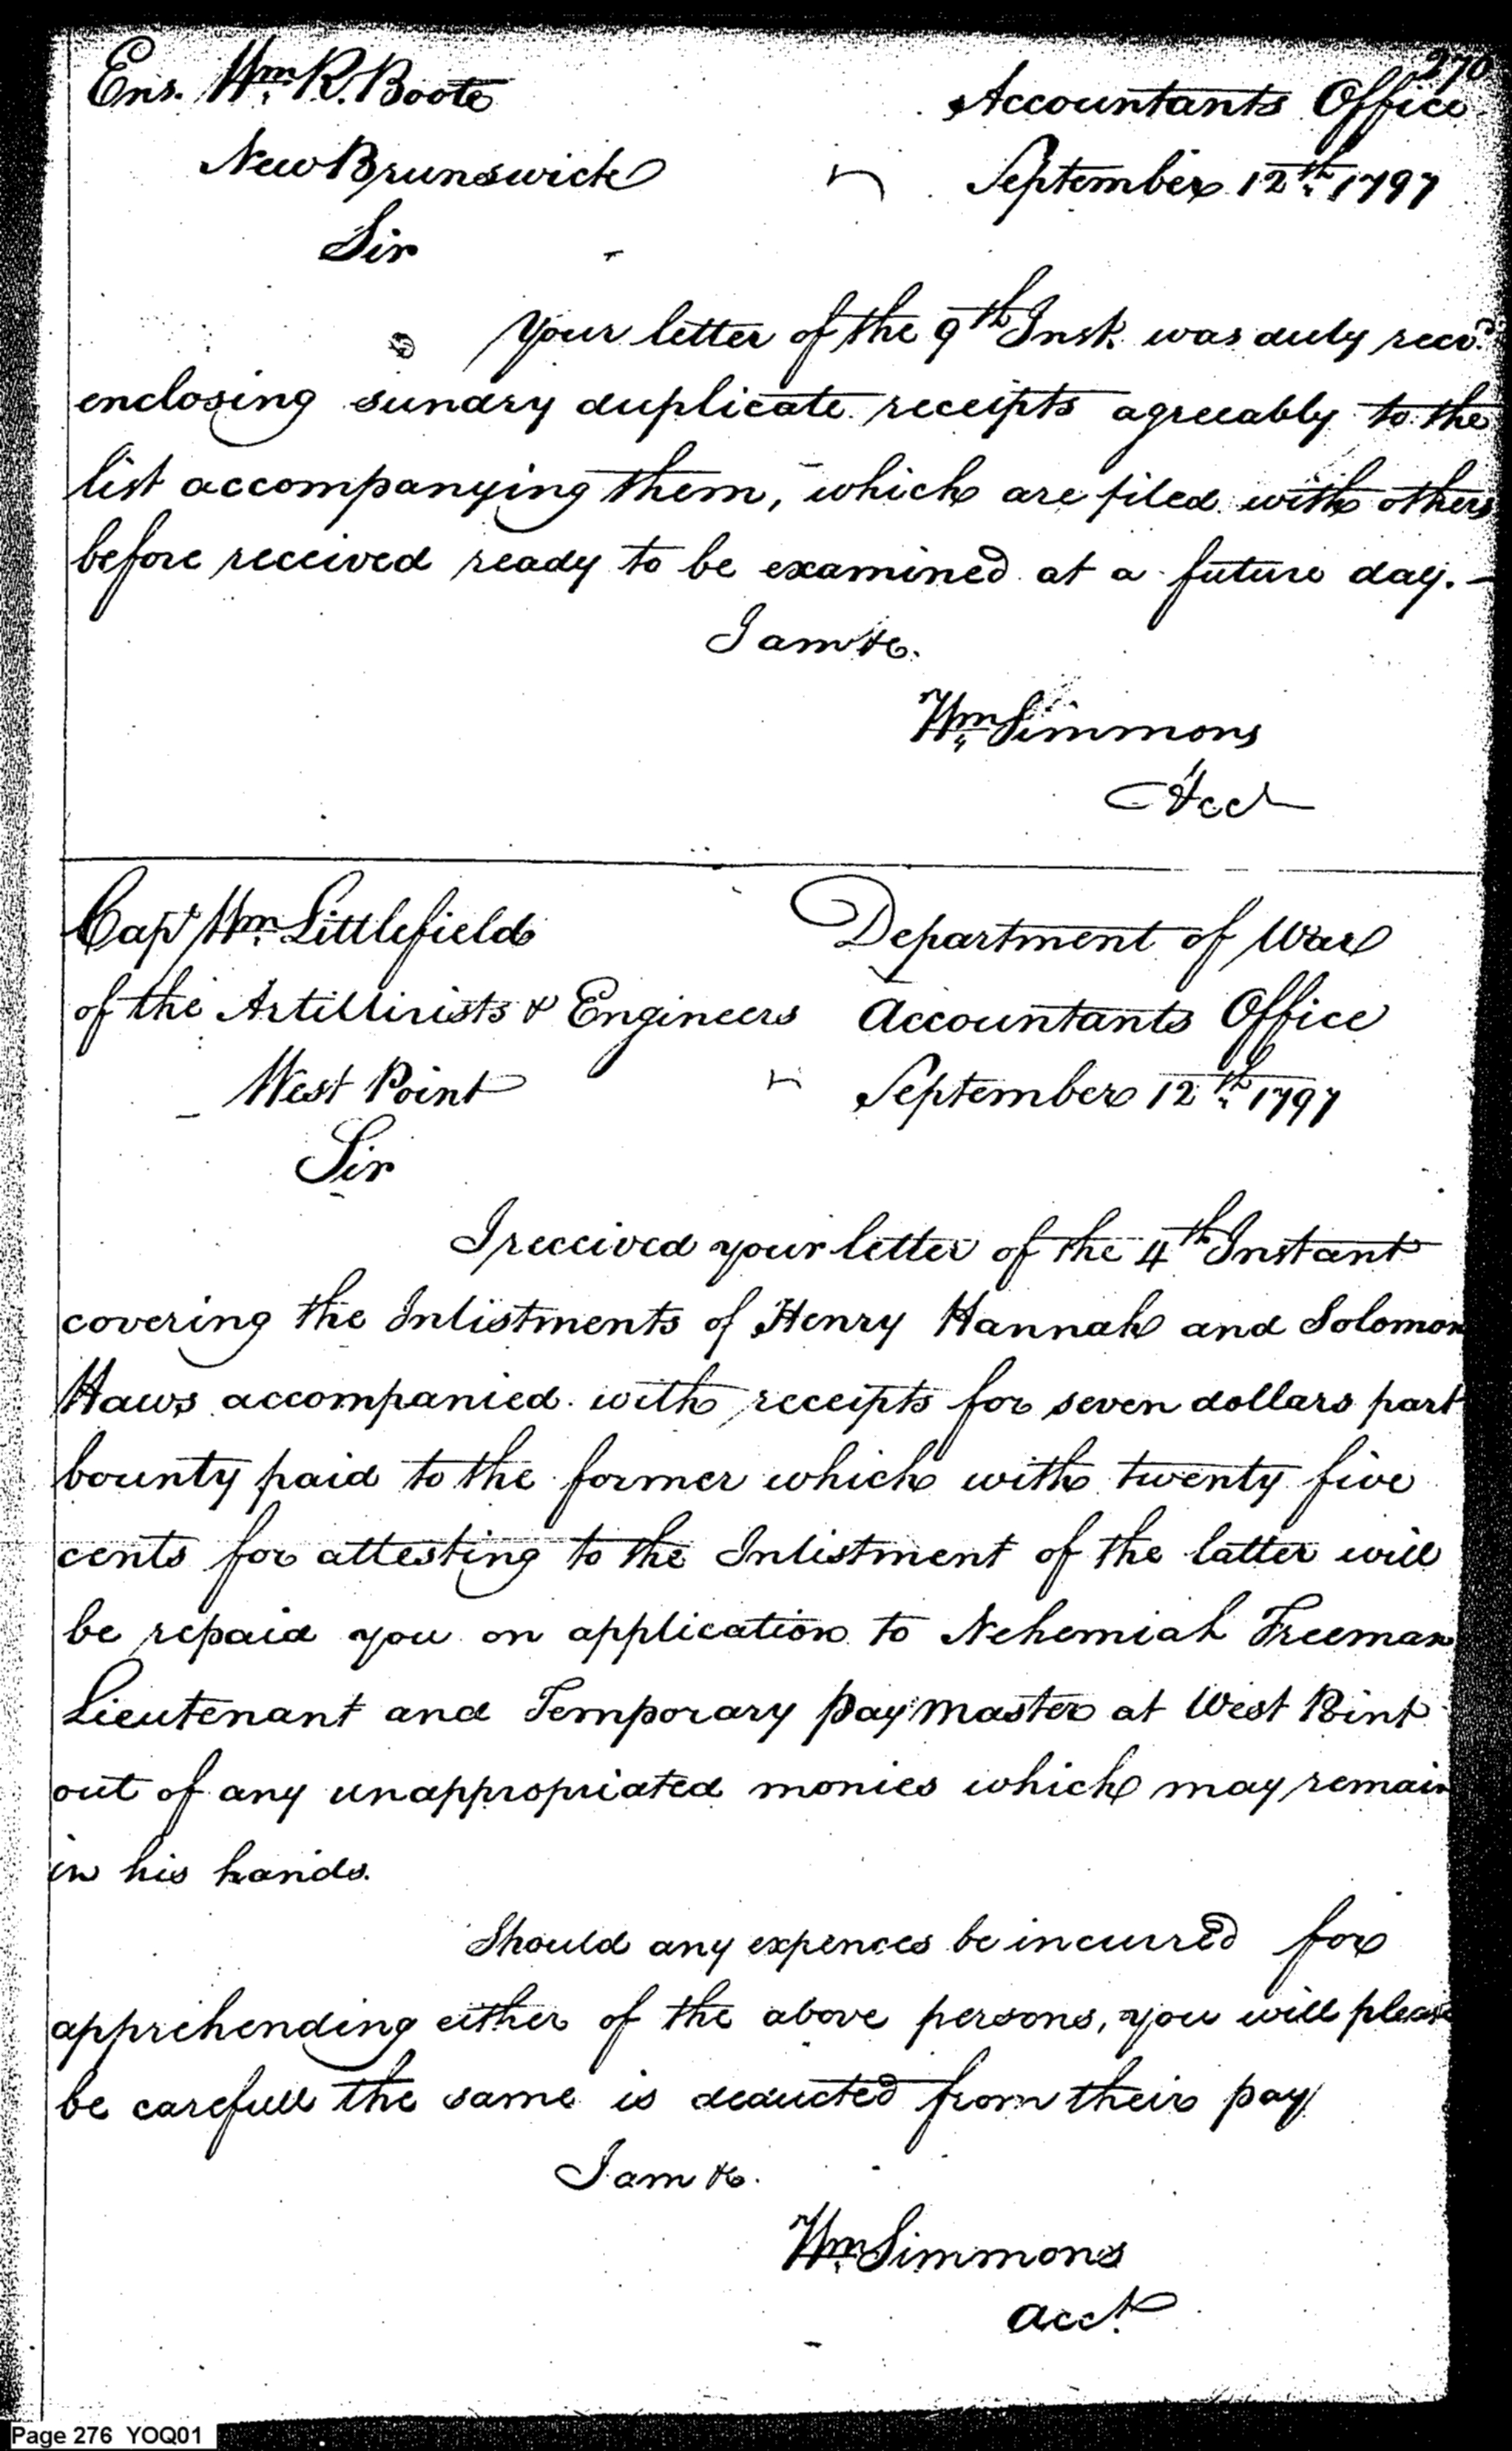 270
Ens. Wm. R. Boote
Accountants Office
New Brunswick
September 12th. 1797
Sir
Your letter of the 9th Inst. was duly recd.
enclosing sundry duplicate receipts agreeably to the
list accompanying them, which are filed with others
before received ready to be examined at a future day. -
I am &c.
Wm. Simmons
Acct
Capt Wm. Littlefield
Department of War
of the Artillirists & Engineers
Accountants Office
West Point
September 12th. 1797
Sir
I received your letter of the 4th Instant
covering the Inlistments of Henry Hannah and Solomon
Haws accompanied with receipts for seven dollars part
bounty paid to the former which with twenty five
cents for attesting to the Inlistment of the latter will
be repaid you on application to Nehemiah Freeman
Lieutenant and Temporary paymaster at West Point
out of any unappropriated monies which may remain
in his hands.
Should any expences be incurred for
apprehending either of the above persons, you will please
be carefull the same is deducted from their pay
I am &c.
Wm. Simmons
acct.
Page 276 YOQ01